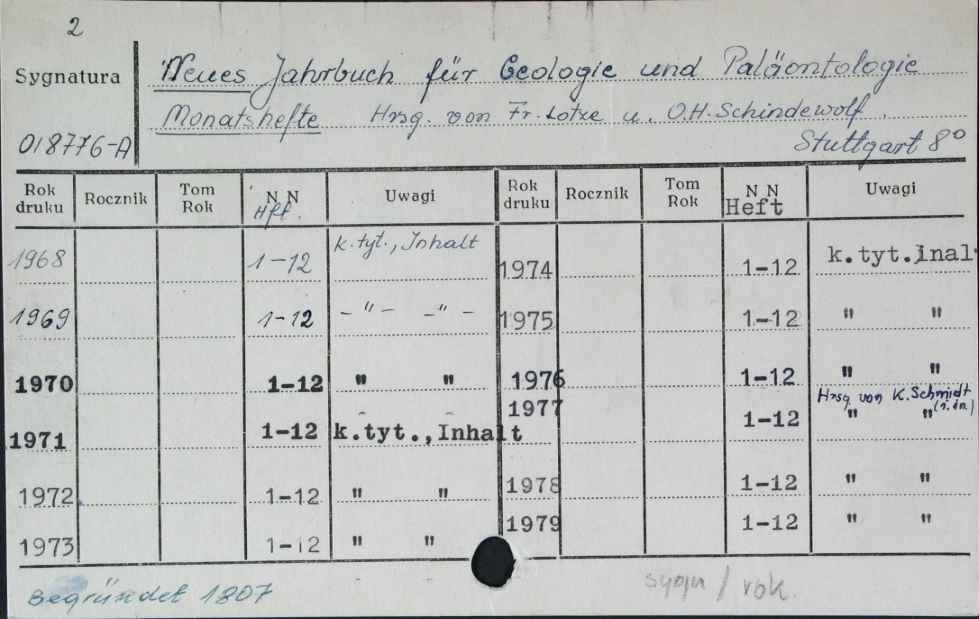 2
Sygnatura Neues Jahrbuch für Geologie und Paläontologie
Monatshefte Hrsg. von Fr. Lotze u. O.H. Schindewolf.
018776-A Stuttgart 8°
Rok druku Rocznik Tom Rok NN Hft. Uwagi Rok druku Rocznik Tom Rok NN Heft Uwagi
1968 1-12 k.tyt., Inhalt 1974 1-12 k.tyt.inal
1969 1-12 -"- -"- 1975 1-12 " "
1970 1-12 " " 1976 1-12 " "
Hrsg von K. Schmidt
1971 1-12 k.tyt., Inhalt 1977 1-12 " "
1972. 1-12 " " 1978 1-12 " "
1973 1-12 " " 1979 1-12 " "
Begründet 1807 sygn / rok.